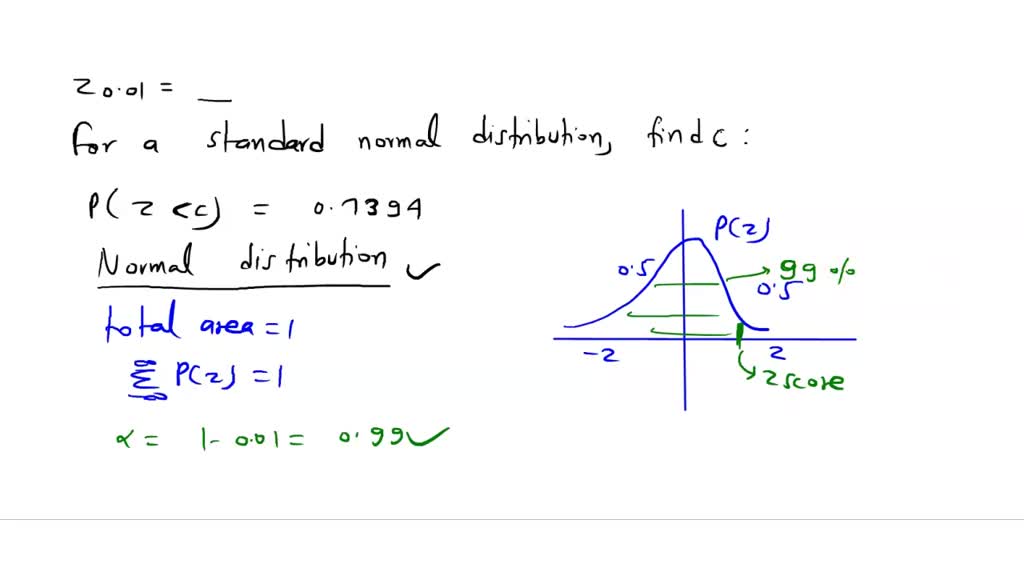 z0.01 = __
For a standard normal distribution, find c :
P( z < c) = 0.7394
Normal distribution ✓
total area = 1
∞
Σ P(z) = 1
-∞
α = 1- 0.01 = 0.99 ✓
P(z)
0.5
99 %
0.5
-2
2
z score